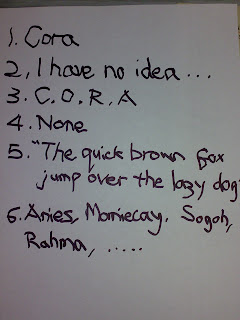 1. Cora
2, I have no idea ...
3. C. O. R. A
4. None
5. "The quick brown fox
jump over the lazy dog"
6. Aries, Morriecay, Sogoh,
Rahma, .....